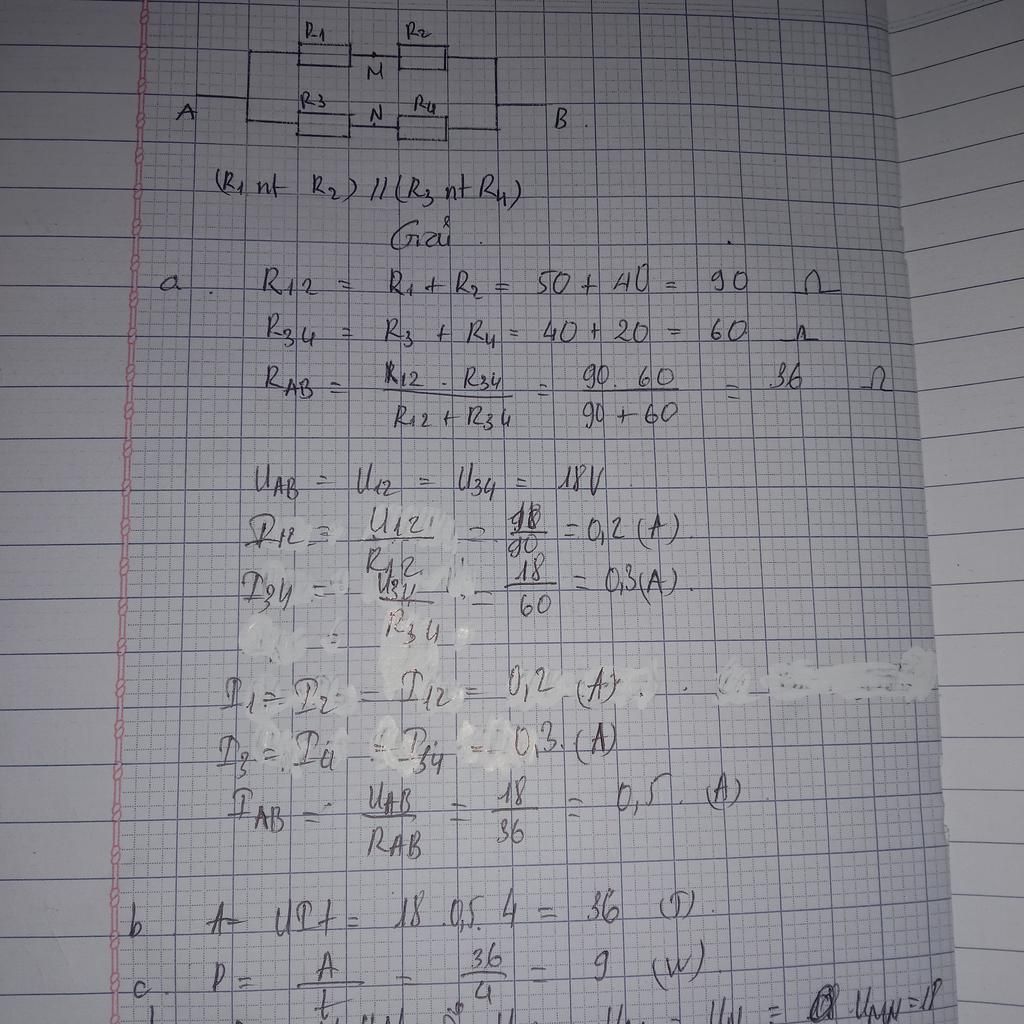 R1 R2
M
A R3 N R4 B.
(R1 nt R2) // (R3 nt R4)
Giải.
a. R12 = R1 + R2 = 50 + 40 = 90 Ω
R34 = R3 + R4 = 40 + 20 = 60 Ω
RAB = R12 . R34 / R12 + R34 = 90. 60 / 90 + 60 = 36 Ω
UAB = U12 = U34 = 18V
I12 = U12 / R12 = 18 / 90 = 0,2 (A).
I34 = U34 / R34 = 18 / 60 = 0,3 (A).
=
I1 = I2 = I12 = 0,2 (A).
I3 = I4 = I34 = 0,3. (A)
IAB = UAB / RAB = 18 / 36 = 0,5. (A)
b A = UIt = 18 . 0,5. 4 = 36 (J).
c. P = A / t = 36 / 4 = 9 (W)
UMN = 18